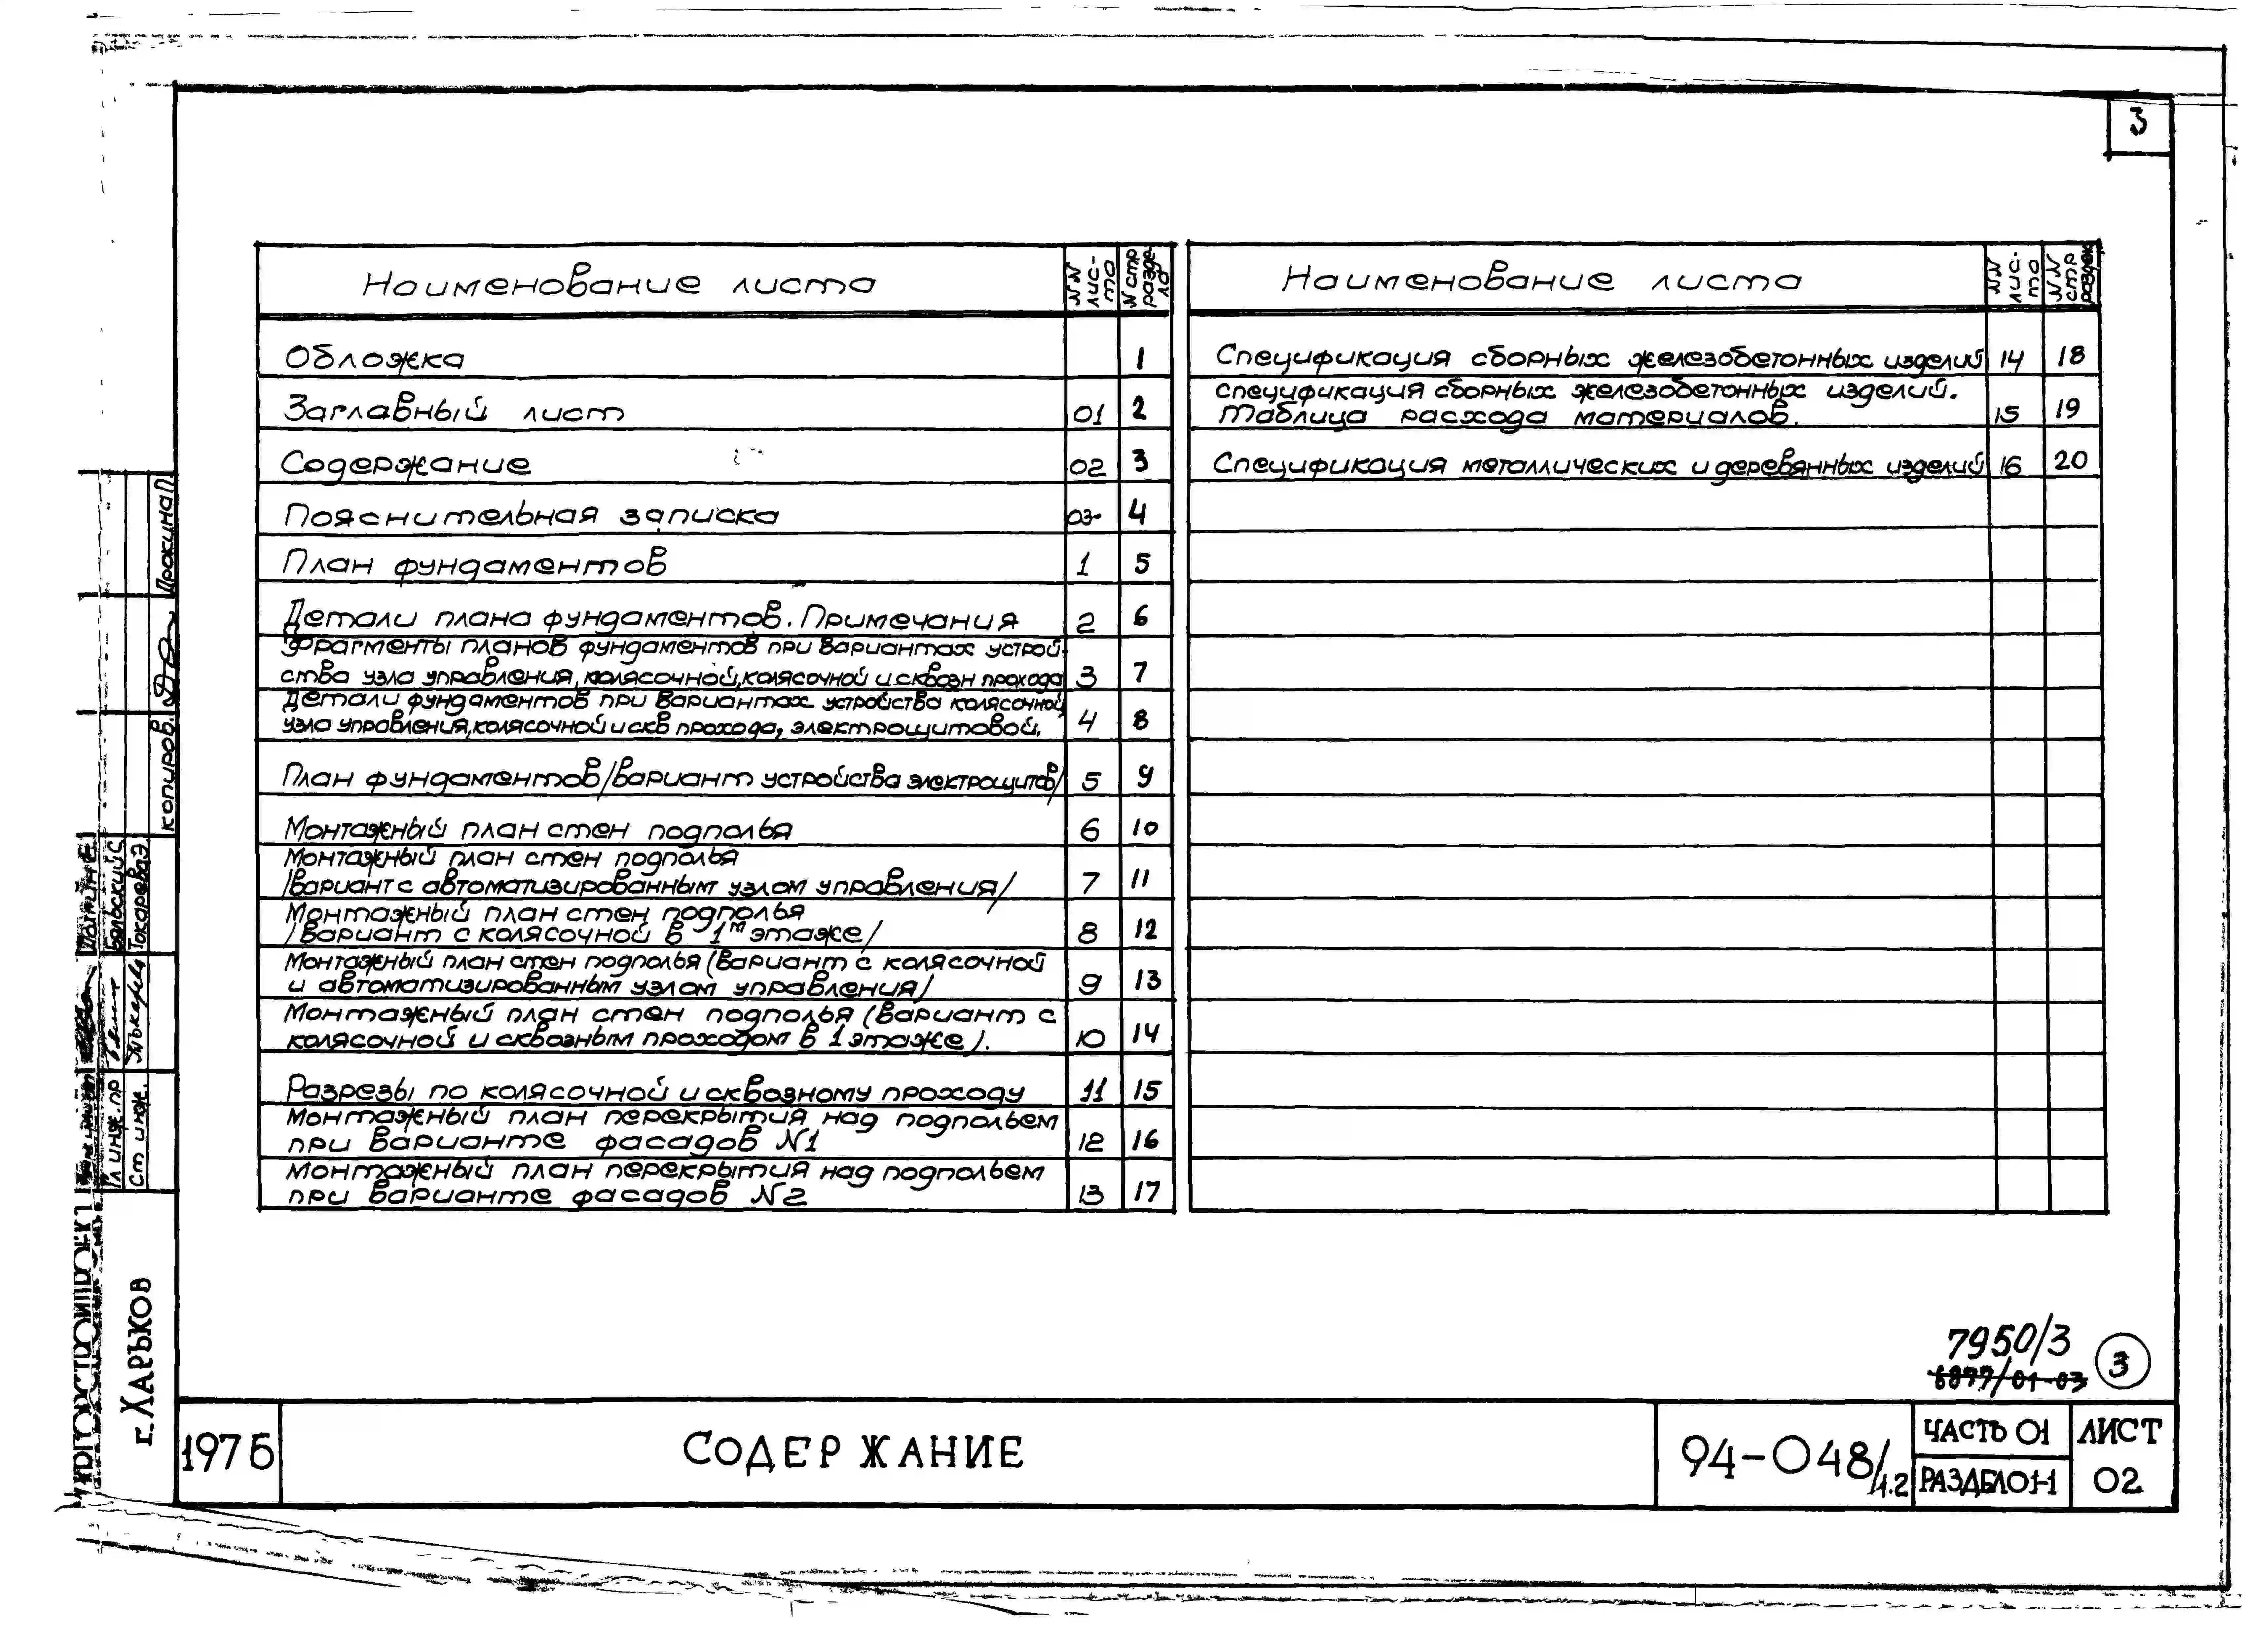 3
Наименование листа
NN лис-та
N стр. разде-ла
Обложка 1
Заглавный лист 01 2
Содержание 02 3
Пояснительная записка 03 4
План фундаментов 1 5
Детали плана фундаментов. Примечания 2 6
Фрагменты планов фундаментов при вариантах устрой-
ства узла управления, колясочной, колясочной и сквозн прохода 3 7
Детали фундаментов при вариантах устройства колясочной,
узла управления, колясочной и скв прохода, электрощитовой. 4 8
План фундаментов /вариант устройства электрощитов/ 5 9
Монтажный план стен подполья 6 10
Монтажный план стен подполья
/вариант с автоматизированным узлом управления/ 7 11
Монтажный план стен подполья
/вариант с колясочной в 1м этаже/ 8 12
Монтажный план стен подполья (вариант с колясочной
и автоматизированным узлом управления/ 9 13
Монтажный план стен подполья (вариант с
колясочной и сквозным проходом в 1 этаже). 10 14
Разрезы по колясочной и сквозному проходу 11 15
Монтажный план перекрытия над подпольем
при варианте фасадов N1 12 16
Монтажный план перекрытия над подпольем
при варианте фасадов N2 13 17
Наименование листа
NN лис-та
NN стр раздел
Спецификация сборных железобетонных изделий 14 18
Спецификация сборных железобетонных изделий.
Таблица расхода материалов. 15 19
Спецификация металлических и деревянных изделий 16 20
копиров. Прокина
Бельский С
Токарева Э
Гл инж. пр
Ст инж.
УКРГОРСТРОЙПРОЕКТ
г. Харьков
7950/3
6877/01-03
3
1976
Содержание
94-048/1.2
Часть 01
Раздел 01-1
Лист
02